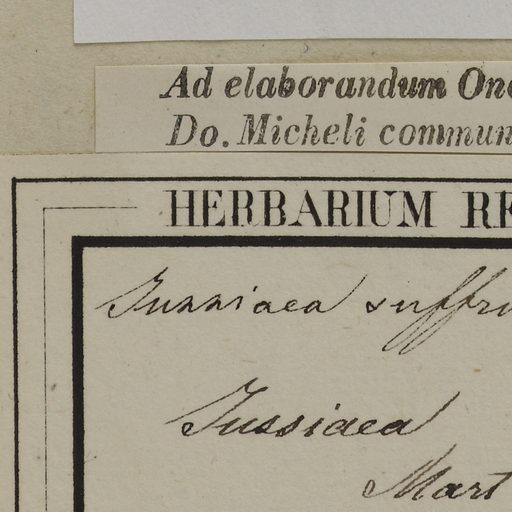 Ad elaborandum Ona
Do. Micheli commun
HERBARIUM RE
Jussiaea suffru
Jussiaea
Mart